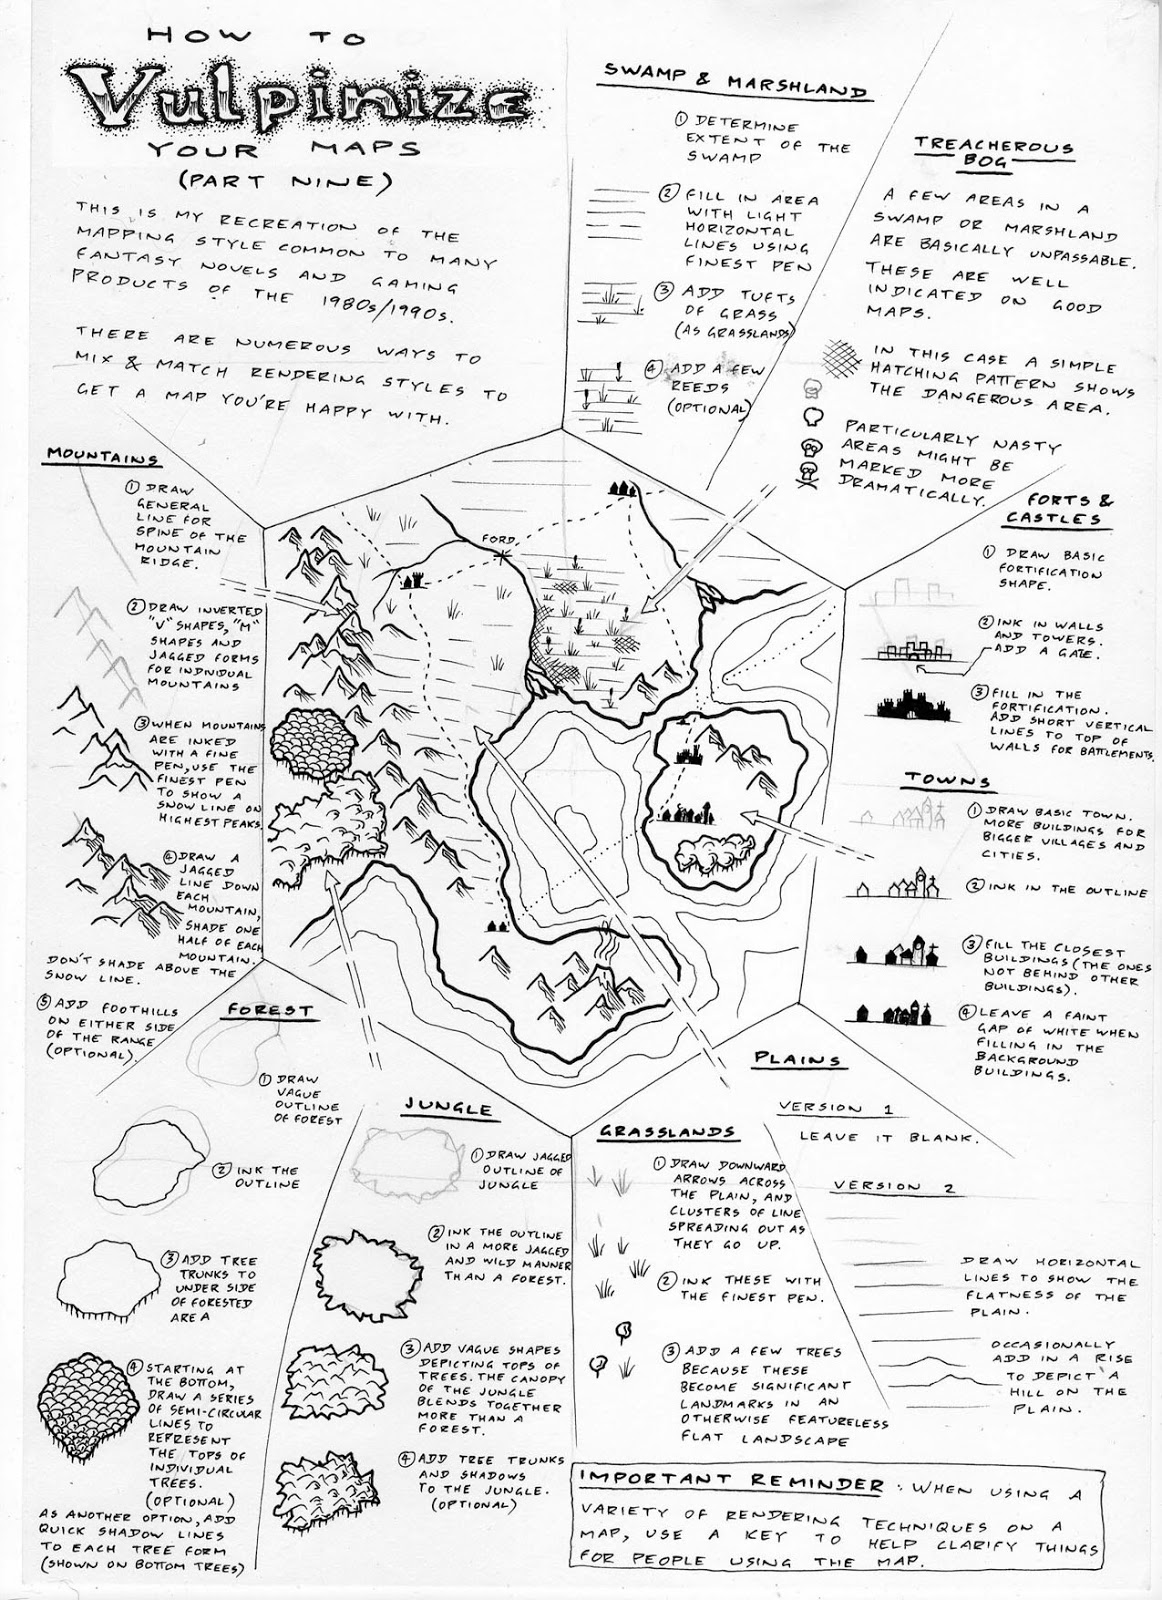 HOW TO
Vulpinize
YOUR MAPS
(PART NINE)
THIS IS MY RECREATION OF THE
MAPPING STYLE COMMON TO MANY
FANTASY NOVELS AND GAMING
PRODUCTS OF THE 1980s/1990s.
THERE ARE NUMEROUS WAYS TO
MIX & MATCH RENDERING STYLES TO
GET A MAP YOU'RE HAPPY WITH.
SWAMP & MARSHLAND
① DETERMINE
EXTENT OF THE
SWAMP
② FILL IN AREA
WITH LIGHT
HORIZONTAL
LINES USING
FINEST PEN
③ ADD TUFTS
OF GRASS
(AS GRASSLANDS)
④ ADD A FEW
REEDS
(OPTIONAL)
TREACHEROUS
BOG
A FEW AREAS IN A
SWAMP OR MARSHLAND
ARE BASICALLY UNPASSABLE.
THESE ARE WELL
INDICATED ON GOOD
MAPS.
IN THIS CASE A SIMPLE
HATCHING PATTERN SHOWS
THE DANGEROUS AREA.
PARTICULARLY NASTY
AREAS MIGHT BE
MARKED MORE
DRAMATICALLY.
MOUNTAINS
① DRAW
GENERAL
LINE FOR
SPINE OF THE
MOUNTAIN
RIDGE.
② DRAW INVERTED
"V" SHAPES, "M"
SHAPES AND
JAGGED FORMS
FOR INDIVIDUAL
MOUNTAINS
③ WHEN MOUNTAINS
ARE INKED
WITH A FINE
PEN, USE THE
FINEST PEN
TO SHOW A
SNOW LINE ON
HIGHEST PEAKS.
④ DRAW A
JAGGED
LINE DOWN
EACH
MOUNTAIN,
SHADE ONE
HALF OF EACH
MOUNTAIN.
DON'T SHADE ABOVE THE
SNOW LINE.
⑤ ADD FOOTHILLS
ON EITHER SIDE
OF THE RANGE
(OPTIONAL).
FORD.
FORTS &
CASTLES
① DRAW BASIC
FORTIFICATION
SHAPE.
② INK IN WALLS
AND TOWERS.
ADD A GATE.
③ FILL IN THE
FORTIFICATION.
ADD SHORT VERTICAL
LINES TO TOP OF
WALLS FOR BATTLEMENTS.
TOWNS
① DRAW BASIC TOWN.
MORE BUILDINGS FOR
BIGGER VILLAGES AND
CITIES.
② INK IN THE OUTLINE
③ FILL THE CLOSEST
BUILDINGS (THE ONES
NOT BEHIND OTHER
BUILDINGS).
④ LEAVE A FAINT
GAP OF WHITE WHEN
FILLING IN THE
BACKGROUND
BUILDINGS.
FOREST
① DRAW
VAGUE
OUTLINE
OF FOREST
② INK THE
OUTLINE
③ ADD TREE
TRUNKS TO
UNDER SIDE
OF FORESTED
AREA
④ STARTING AT
THE BOTTOM,
DRAW A SERIES
OF SEMI-CIRCULAR
LINES TO
REPRESENT
THE TOPS OF
INDIVIDUAL
TREES.
(OPTIONAL)
AS ANOTHER OPTION, ADD
QUICK SHADOW LINES
TO EACH TREE FORM
(SHOWN ON BOTTOM TREES)
JUNGLE
① DRAW JAGGED
OUTLINE OF
JUNGLE
② INK THE OUTLINE
IN A MORE JAGGED
AND WILD MANNER
THAN A FOREST.
③ ADD VAGUE SHAPES
DEPICTING TOPS OF
TREES. THE CANOPY
OF THE JUNGLE
BLENDS TOGETHER
MORE THAN A
FOREST.
④ ADD TREE TRUNKS
AND SHADOWS
TO THE JUNGLE.
(OPTIONAL)
GRASSLANDS
① DRAW DOWNWARD
ARROWS ACROSS
THE PLAIN, AND
CLUSTERS OF LINE
SPREADING OUT AS
THEY GO UP.
② INK THESE WITH
THE FINEST PEN.
③ ADD A FEW TREES
BECAUSE THESE
BECOME SIGNIFICANT
LANDMARKS IN AN
OTHERWISE FEATURELESS
FLAT LANDSCAPE
PLAINS
VERSION 1
LEAVE IT BLANK.
VERSION 2
DRAW HORIZONTAL
LINES TO SHOW THE
FLATNESS OF THE
PLAIN.
OCCASIONALLY
ADD IN A RISE
TO DEPICT A
HILL ON THE
PLAIN.
IMPORTANT REMINDER: WHEN USING A
VARIETY OF RENDERING TECHNIQUES ON A
MAP, USE A KEY TO HELP CLARIFY THINGS
FOR PEOPLE USING THE MAP.